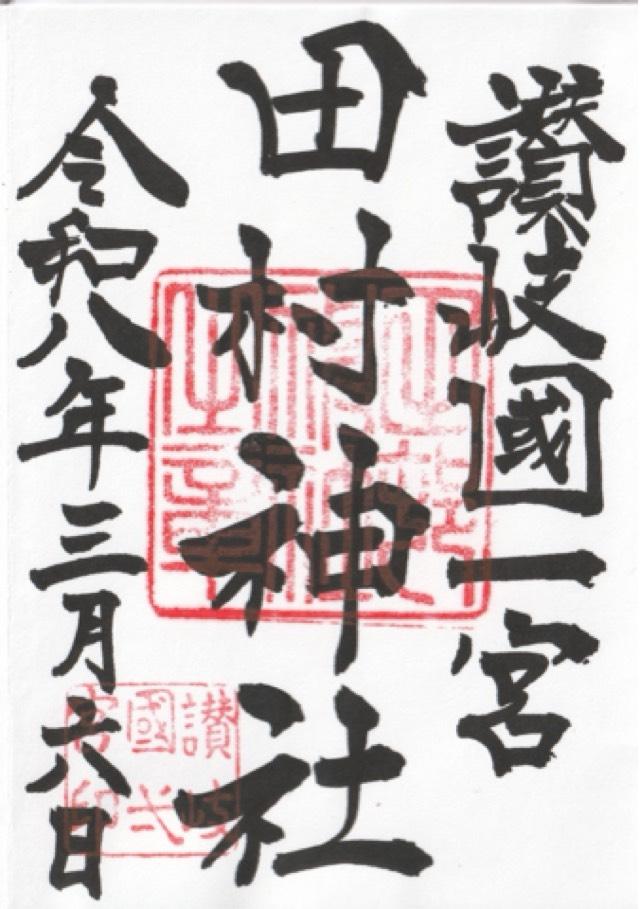 讃岐國一宮
田村神社
令和八年三月六日
讃岐
國弌
宮印